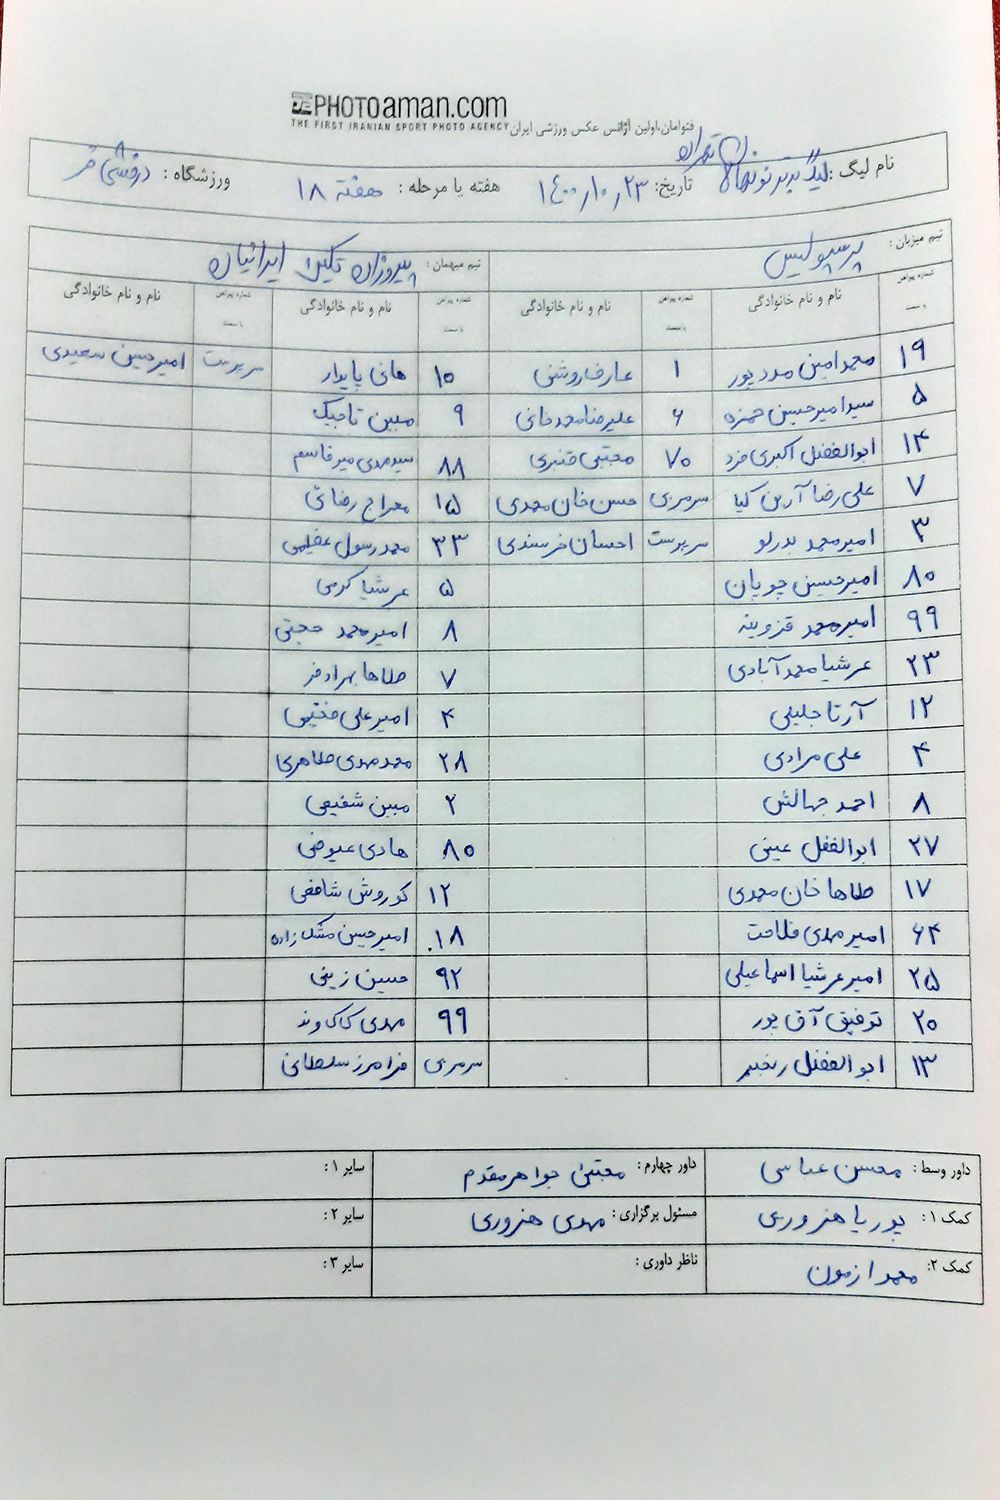 PHOTOaman.com
THE FIRST IRANIAN SPORT PHOTO AGENCY
فتوامان،اولین آژانس عکس ورزشی ایران
نام لیگ: لیگ برتر نونهالان تهران تاریخ: ۱۴۰۰٫۱۰٫۲۳ هفته یا مرحله: هفته ۱۸ ورزشگاه: درفشی فر
تیم میزبان: پرسپولیس تیم میهمان: پیروزان تکین ایرانیان
شماره پیراهن یا سمت نام و نام خانوادگی شماره پیراهن یا سمت نام و نام خانوادگی شماره پیراهن یا سمت نام و نام خانوادگی شماره پیراهن یا سمت نام و نام خانوادگی
۱۹ محمدامین مددپور ۱ عارف روشنی ۱۰ هانی پایدار سرپرست امیرحسین سعیدی
۵ سیدامیرحسین حمزه ۶ علیرضا محمدخانی ۹ مبین تاجیک
۱۴ ابوالفضل اکبری فرد ۷۰ مجتبی قنبری ۸۸ سیدمهدی میرقاسم
۷ علی رضا آرین کیا سرمربی حسن خان محمدی ۱۵ معراج رضائی
۳ امیرمحمد بدرلو سرپرست احسان خرسندی ۳۳ محمدرسول عظیمی
۸۰ امیرحسین جویان ۵ عرشیا کرمی
۹۹ امیرمحمد قزوینه ۸ امیرمحمد حجتی
۲۳ عرشیا محمدآبادی ۷ طاها بهرادفر
۱۲ آرتا جلیلی ۴ امیرعلی فتحی
۴ علی مرادی ۲۸ محمدمهدی طاهری
۸ احمد جهالش ۲ مبین شفیعی
۲۷ ابوالفضل عینی ۸۰ هادی عیوضی
۱۷ طاها خان محمدی ۱۲ کوروش شافعی
۶۴ امیرمهدی فلاحت ۱۸ امیرحسین مشک زاده
۲۵ امیرعرشیا اسماعیلی ۹۲ حسین زینی
۲۰ توفیق آق پور ۹۹ مهدی کاکاوند
۱۳ ابوالفضل رنجبر سرمربی فرامرز سلطانی
داور وسط: محسن عباسی داور چهارم: مجتبی جواهرمقدم سایر ۱:
کمک ۱: پوریا هنروری مسئول برگزاری: مهدی هنروری سایر ۲:
کمک ۲: محمد ازمون ناظر داوری: سایر ۳: